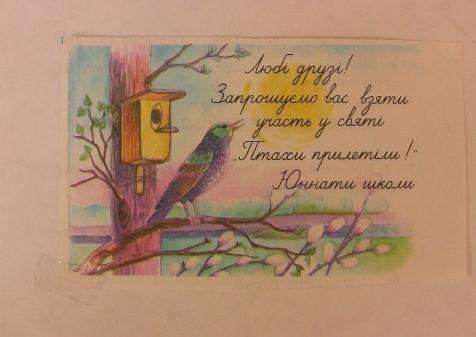 Любі друзі!
Запрошуємо вас взяти
участь у святі
„Птахи прилетіли!"
Юннати школи